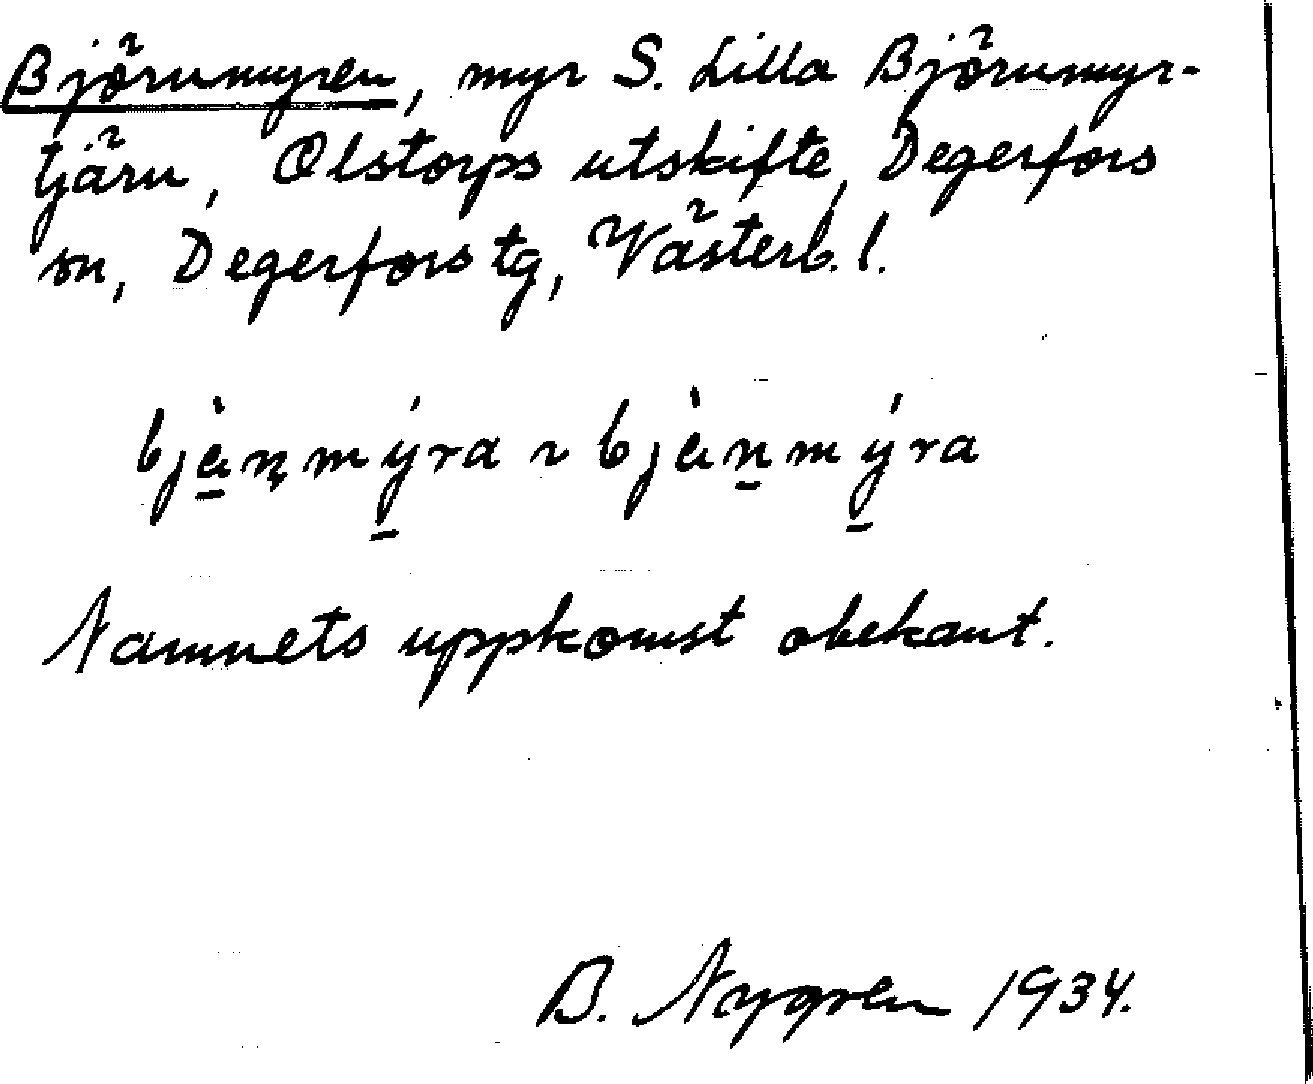 Björnmyren, myr S. Lilla Björnmyr-
tjärn, Olstorps utskifte, Degerfors
sn, Degerfors tg, Västerb. l.
bjàṇmýra ~ bjènmýra
Namnets uppkomst obekant.
B. Nygren 1934.